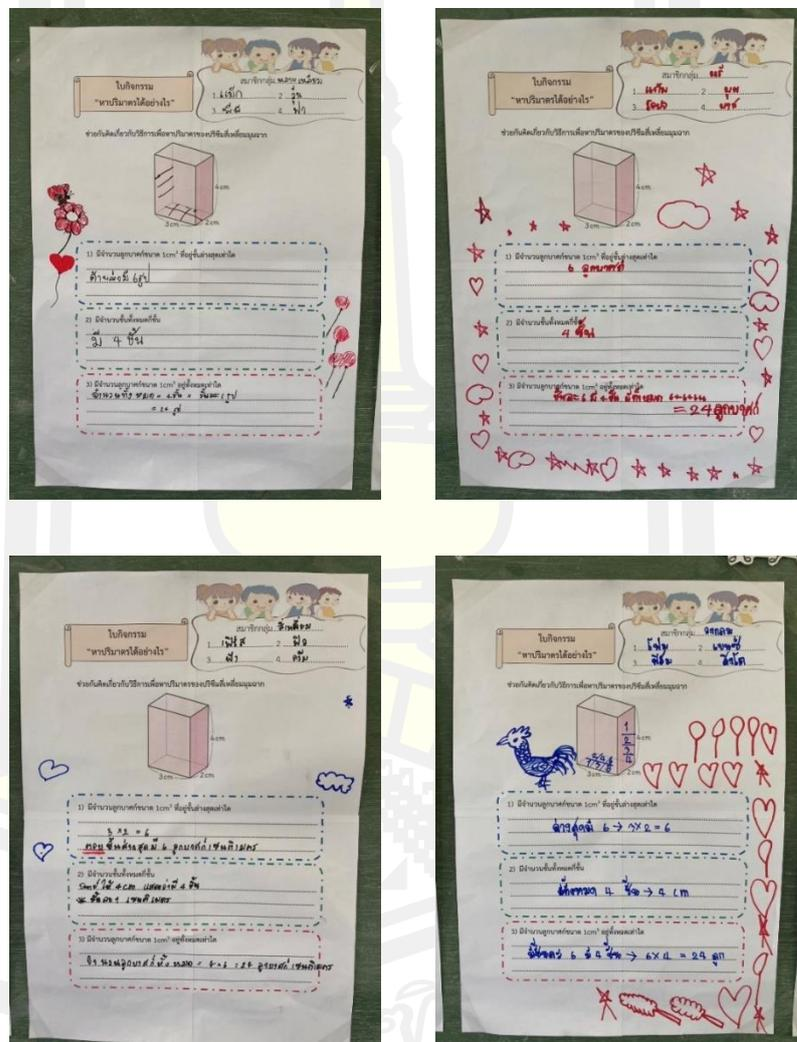 ใบกิจกรรม
"หาปริมาตรได้อย่างไร"
สมาชิกกลุ่ม
1. 2.
3. 4. ฟ้า
ช่วยกันคิดเกี่ยวกับวิธีการเพื่อหาปริมาตรของปริซึมสี่เหลี่ยมมุมฉาก
4cm
3cm 2cm
1) มีจำนวนลูกบาศก์ขนาด 1cm³ ที่อยู่ชั้นล่างสุดเท่าใด
ด้านล่างมี 6รูป
2) มีจำนวนชั้นทั้งหมดกี่ชั้น
มี 4 ชั้น
3) มีจำนวนลูกบาศก์ขนาด 1cm³ อยู่ทั้งหมดเท่าใด
จำนวนทั้งหมด = 4ชั้น ×
= 24 รูป
ใบกิจกรรม
"หาปริมาตรได้อย่างไร"
สมาชิกกลุ่ม
1. 2.
3. 4.
ช่วยกันคิดเกี่ยวกับวิธีการเพื่อหาปริมาตรของปริซึมสี่เหลี่ยมมุมฉาก
4cm
3cm 2cm
1) มีจำนวนลูกบาศก์ขนาด 1cm³ ที่อยู่ชั้นล่างสุดเท่าใด
6 ลูกบาศก์
2) มีจำนวนชั้นทั้งหมดกี่ชั้น
4 ชั้น
3) มีจำนวนลูกบาศก์ขนาด 1cm³ อยู่ทั้งหมดเท่าใด
ชั้นละ 6 มี 4 ชั้น
= 24ลูกบาศก์
ใบกิจกรรม
"หาปริมาตรได้อย่างไร"
สมาชิกกลุ่ม
1. 2.
3. 4. ครีม
ช่วยกันคิดเกี่ยวกับวิธีการเพื่อหาปริมาตรของปริซึมสี่เหลี่ยมมุมฉาก
4cm
3cm 2cm
1) มีจำนวนลูกบาศก์ขนาด 1cm³ ที่อยู่ชั้นล่างสุดเท่าใด
3 × 2 = 6
ตอบ ชั้นล่างสุดมี 6 ลูกบาศก์เซนติเมตร
2) มีจำนวนชั้นทั้งหมดกี่ชั้น
4 cm แสดงว่ามี 4 ชั้น
ชั้นละ 1 เซนติเมตร
3) มีจำนวนลูกบาศก์ขนาด 1cm³ อยู่ทั้งหมดเท่าใด
จำนวนลูกบาศก์ทั้งหมด = 4×6 = 24 ลูกบาศก์เซนติเมตร
ใบกิจกรรม
"หาปริมาตรได้อย่างไร"
สมาชิกกลุ่ม
1. 2.
3. 4.
ช่วยกันคิดเกี่ยวกับวิธีการเพื่อหาปริมาตรของปริซึมสี่เหลี่ยมมุมฉาก
1
2
3
4
4cm
3cm 2cm
1) มีจำนวนลูกบาศก์ขนาด 1cm³ ที่อยู่ชั้นล่างสุดเท่าใด
ล่างสุดมี 6 → 3×2 = 6
2) มีจำนวนชั้นทั้งหมดกี่ชั้น
ทั้งหมด 4 ชั้น → 4 cm
3) มีจำนวนลูกบาศก์ขนาด 1cm³ อยู่ทั้งหมดเท่าใด
6 มี 4 ชั้น → 6×4 = 24 ลูก